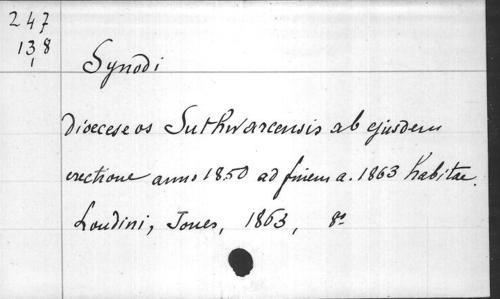 247
138
1
Synodi
dioeceseos Suthwarcensis ab ejusdem
erectione anno 1850 ad finem a. 1863 habitae.
Londini, Jones, 1863, 8o